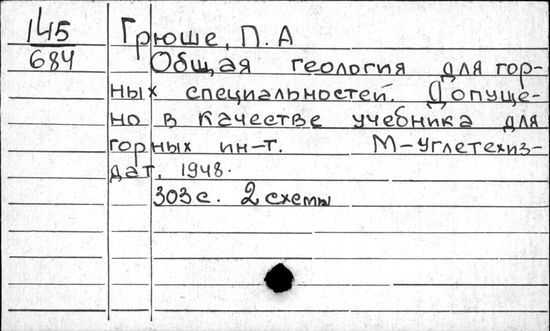 145
684
Грюше, П. А
Общая геология для гор-
ных специальностей. Допуще-
но в качестве учебника для
горных ин-т. М-Углетехиз-
дат, 1948.
303 с. 2 схемы